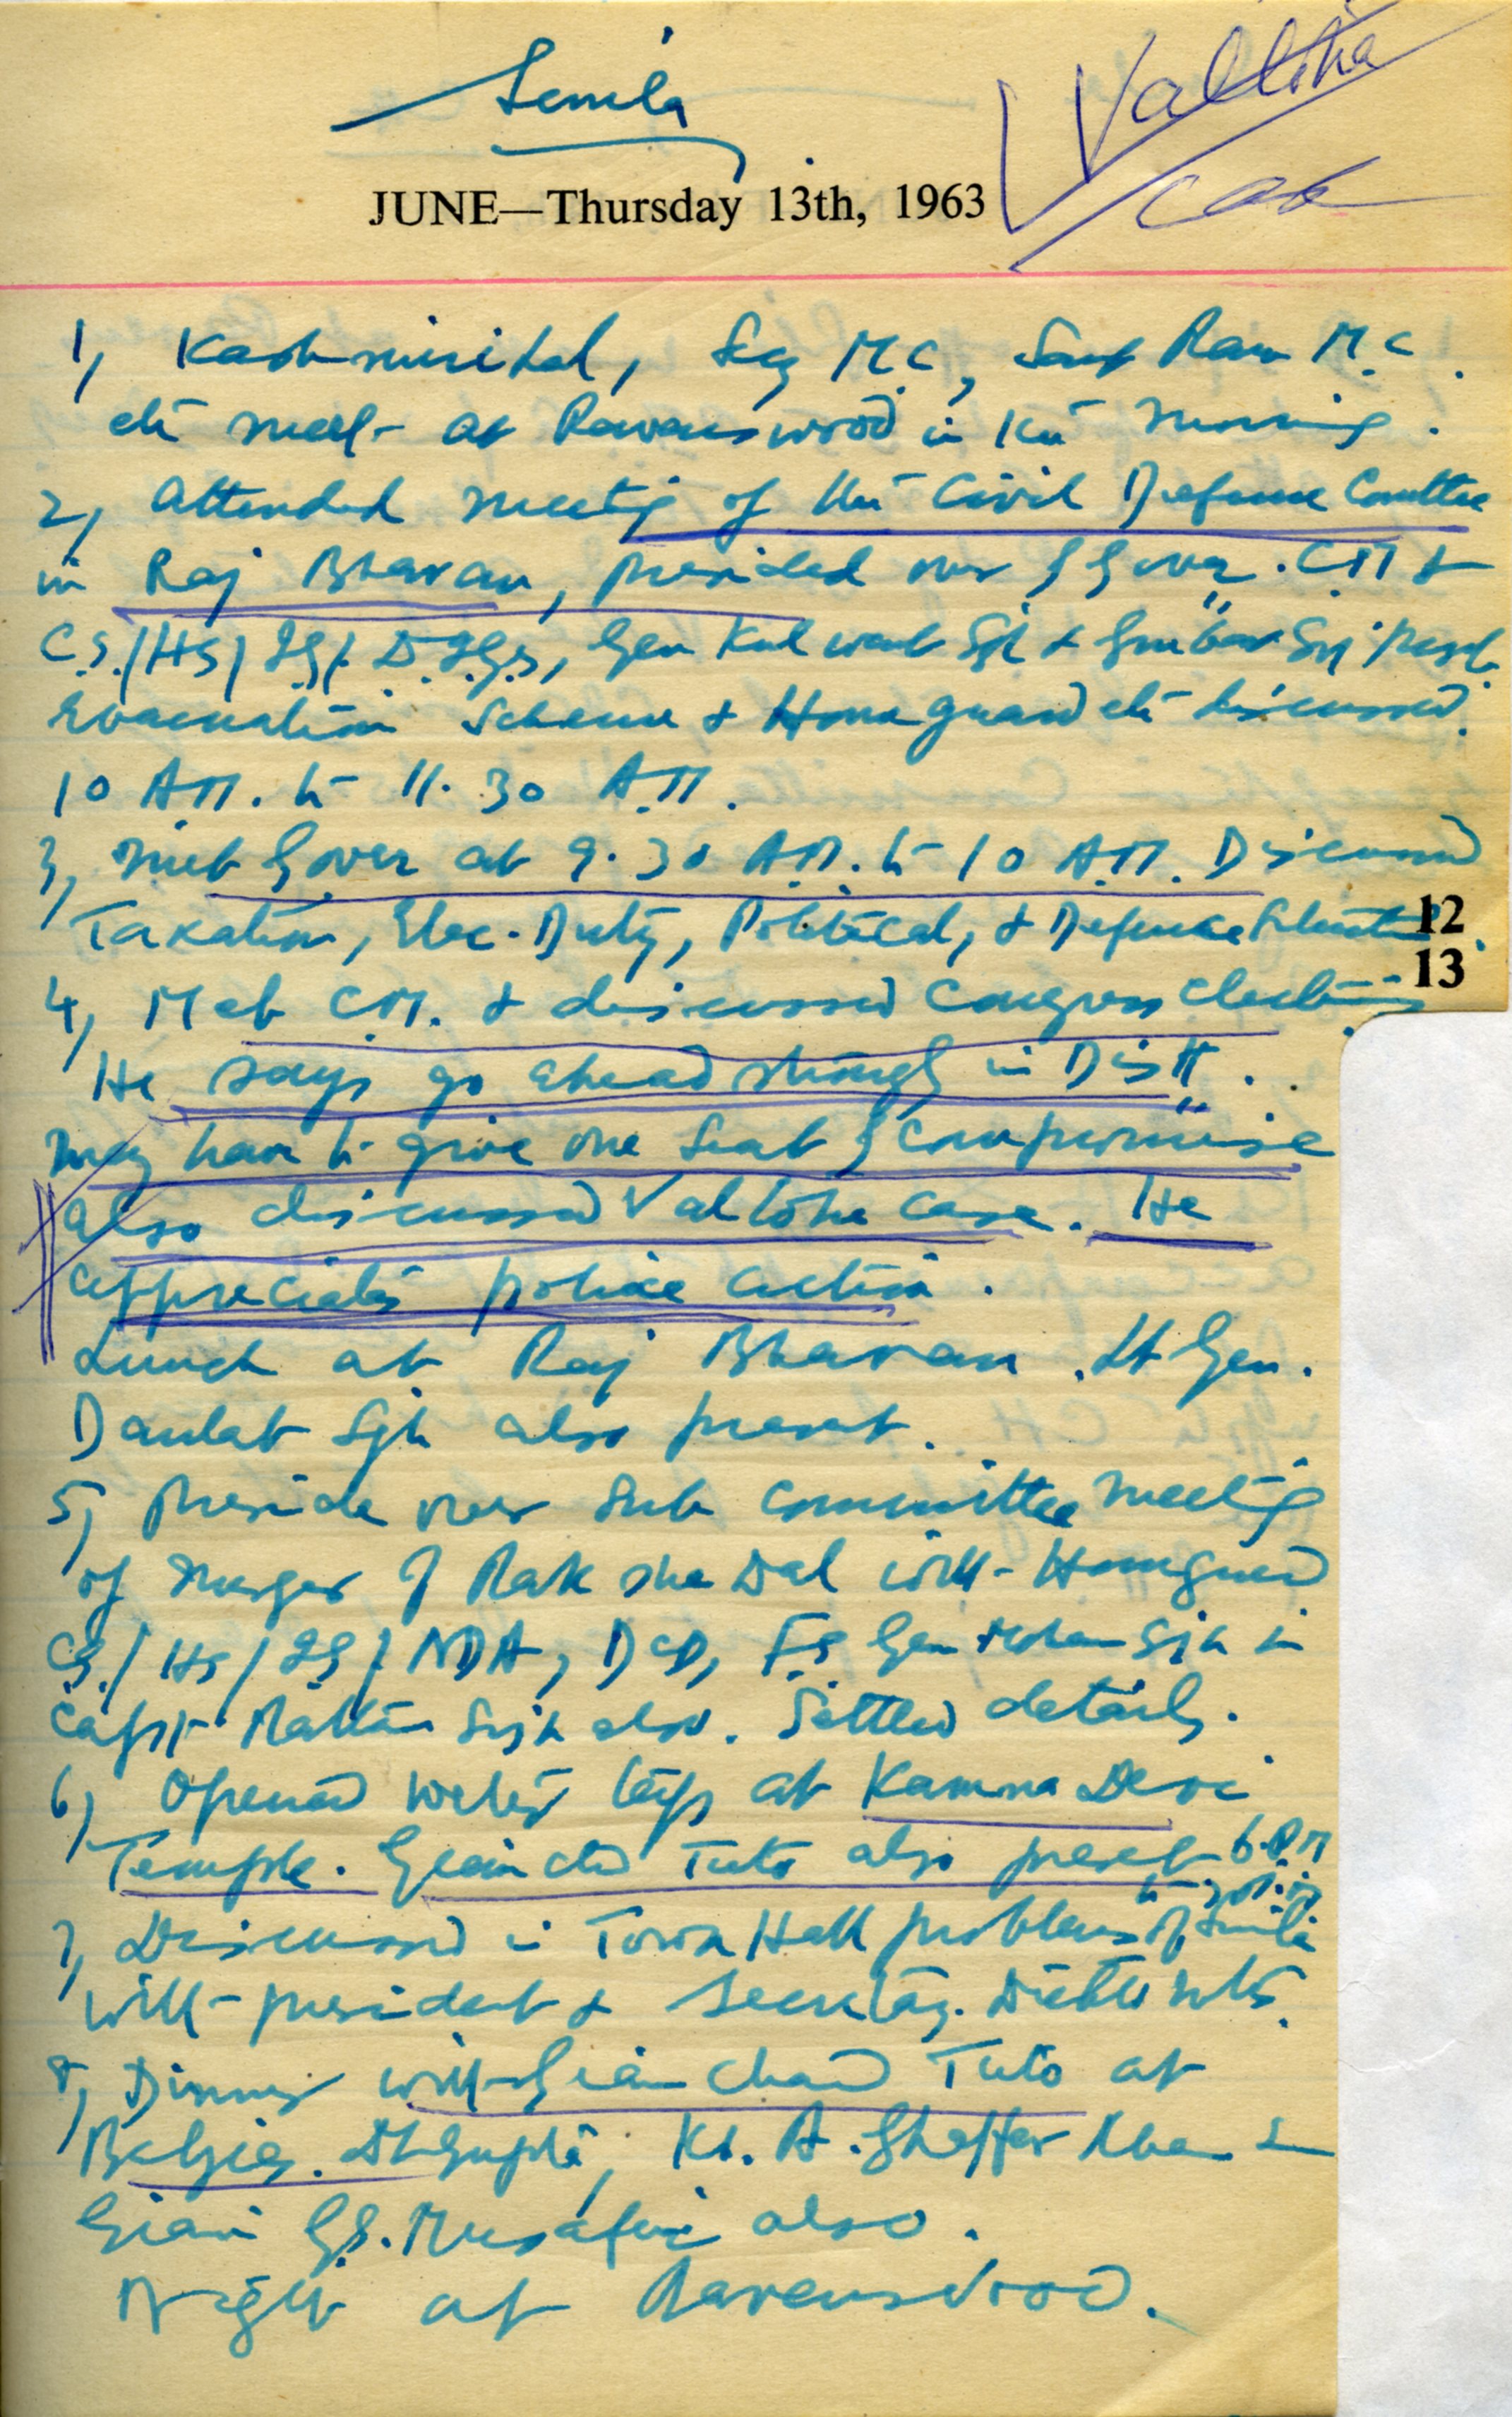 Simla
Valtoha
Case
JUNE—Thursday 13th, 1963
1, Kashmirilal, Secy M.C, Sant Ram M.C.
etc meet at Ravenswood in the morning.
2, Attended meeting of the Civil Defence Comittee
in Raj Bhavan, presided over by Gover. CM &
C.S./HS/IG/. D.I.G.s, Gen Kulwant Sgh & Gurbax Sgh present.
Evacuation Scheme & Home guard etc discussed.
10 AM. to 11.30 A.M.
3, Met Gover at 9.30 A.M. to 10 A.M. Discussed
Taxation, Elec. Duty, Political, & Defence Situation.
12
13
4, Met C.M. & discussed Congress Elections.
He says go ahead strongly in Distt.
May have to give one seat by compromise
also discussed Valtoha case. He
appreciates police action.
Lunch at Raj Bhavan. Lt Gen.
Daulat Sgh also present.
5, Preside over Sub Committee meeting
of merger of Raksha Dal with Homeguard
CS./HS/IG/NDA, DCD, FS Gen Mohan Sgh &
Capt Rattan Sgh also. Settled details.
6, Opened water taps at Kamna Devi
Temple. Gian Chd Tuto also present 6.P.M
to 7 P.M.
7, Discussed in Town Hall problems of Simla
with president & Secretary.
8, Dinner with Gian Chand Tuto at
DL Gupta, Kh. A. Ghaffar Khan &
Giani GS. Musafir also.
Night at Ravenswood.